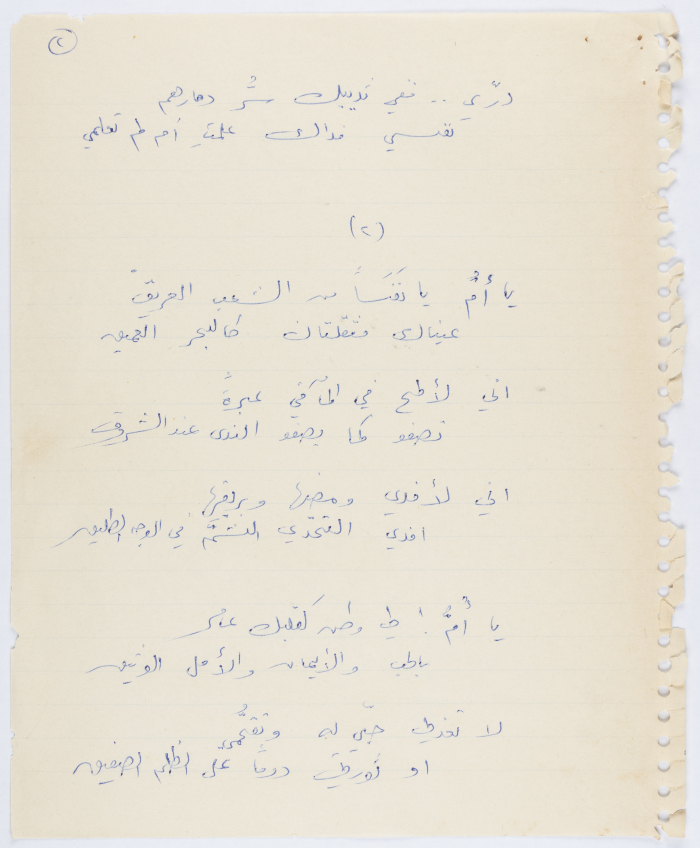 ٢
درّي .. ففي ثدييك سُر دمارهم
نفسي فداك علمتِ أم لم تعلمي
(٢)
يا أمُّ يا نَفَسَاً من الشعب العريقْ
عيناك مقلتان كالبحر العميق
اني لألمح في المآقي عبرةً
تصفو كما يصفو الندى عند الشروق
اني لأفدي ومضها وبريقها
افدي التحدّي الشمَّ في الوجه الطليق
يا أمُّ ! لي وطن كقلبك عامر
بالحب والأيمان والأمل الوثيق
لا تعذلي حبّي له وتقحُّمي
او ثورتي دوماً على الظلم الصفيق